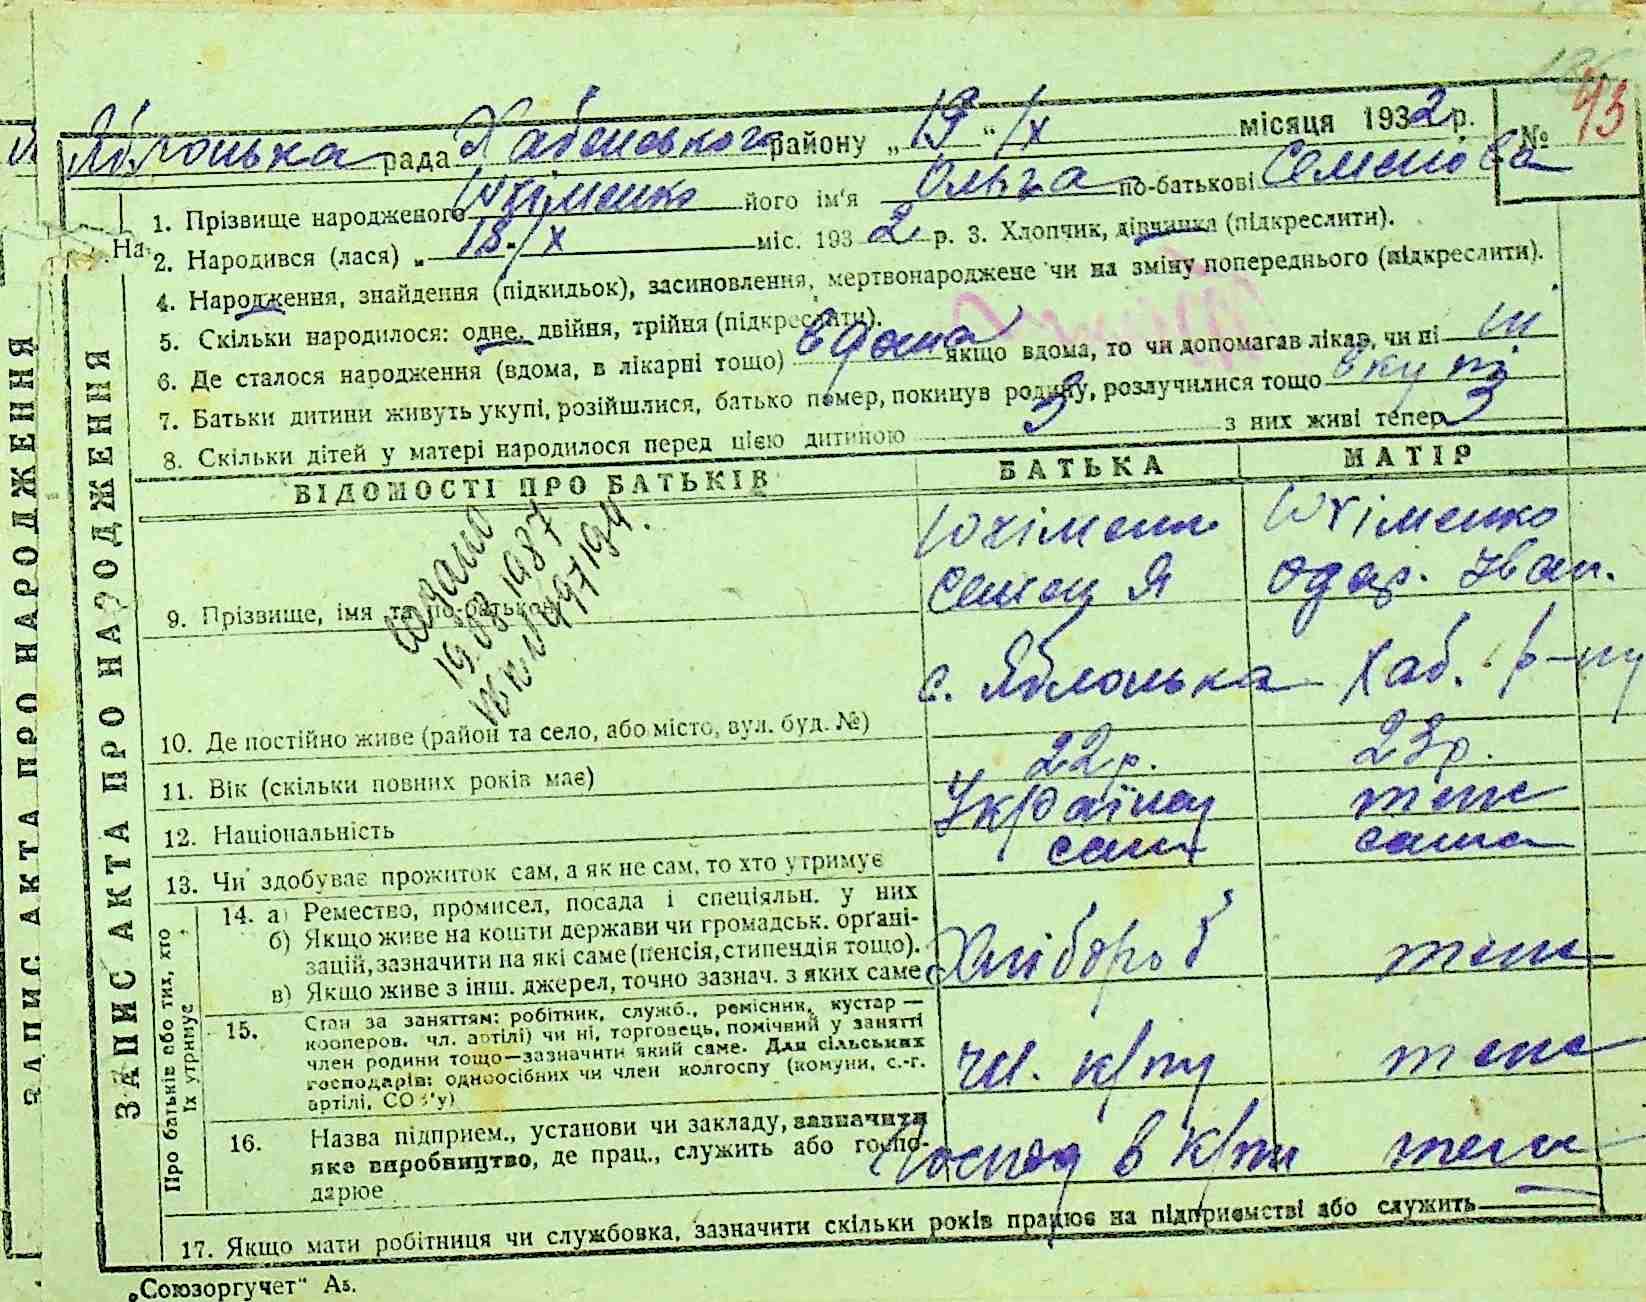 43
Яблонька рада Хабенського району „19“ IX місяця 1932 р. №
1. Прізвище народженого Юхіменко його ім'я Ольга по-батькові Семенова
На
2. Народився (лася) „ 18/IX міс. 1932 р. 3. Хлопчик, дівчинка (підкреслити).
4. Народження, знайдення (підкидьок), засиновлення, мертвонароджене чи на зміну попереднього (підкреслити).
5. Скільки народилося: одне, двійня, трійня (підкреслити).
6. Де сталося народження (вдома, в лікарні тощо) вдома якщо вдома, то чи допомагав лікар, чи ні ні
7. Батьки дитини живуть укупі, розійшлися, батько помер, покинув родину, розлучилися тощо вкупі
8. Скільки дітей у матері народилося перед цією дитиною 3 з них живі тепер 3
ЗАПИС АКТА ПРО НАРОДЖЕННЯ
ЗАПИС АКТА ПРО НАРОДЖЕННЯ
ВІДОМОСТІ ПРО БАТЬКІВ БАТЬКА МАТІР
9. Прізвище, імя та по-батькові Юхіменко Семен Я Юхіменко Одар. Іван.
19.03.1987
10. Де постійно живе (район та село, або місто, вул. буд. №) с. Яблонька Хаб. р-ну
11. Вік (скільки повних років має) 22р. 23р.
12. Національність Українец теж
13. Чи здобуває прожиток сам, а як не сам, то хто утримує сам сама
Про батьків або тих, хто
їх утримує
14. а) Ремество, промисел, посада і спеціяльн. у них
б) Якщо живе на кошти держави чи громадськ. орґані-
зацій, зазначити на які саме (пенсія, стипендія тощо).
в) Якщо живе з інш. джерел, точно зазнач. з яких саме Хлібороб теж
15. Стан за заняттям: робітник, служб., ремісник, кустар —
кооперов. чл. артілі) чи ні, торговець, помічний у занятті
член родини тощо—зазначити який саме. Для сільських
господарів: одноосібних чи член колгоспу (комуни, с.-г.
артілі, СОЗ'у) чл. к/гпу теж
16. Назва підприєм., установи чи закладу, зазначити
яке виробництво, де прац., служить або госпо-
дарює Господ в к/гпі теж
17. Якщо мати робітниця чи службовка, зазначити скільки років працює на підприємстві або служить —
„Союзоргучет“ Аз.